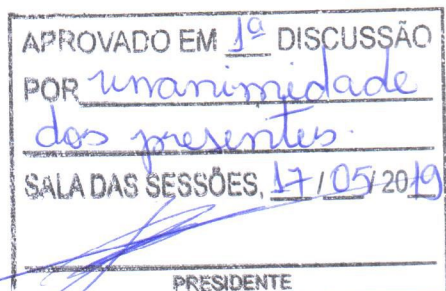 APROVADO EM 1ª DISCUSSÃO
POR unanimidade
dos presentes.
SALA DAS SESSÕES, 17 / 05 / 2019
PRESIDENTE